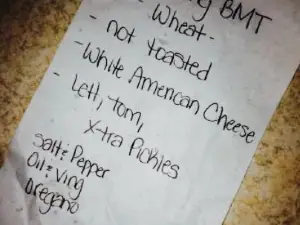 BMT
- Wheat -
- not toasted
- White American Cheese
- Lett, Tom,
X-tra Pickles
Salt & Pepper
Oil & Ving
Oregano